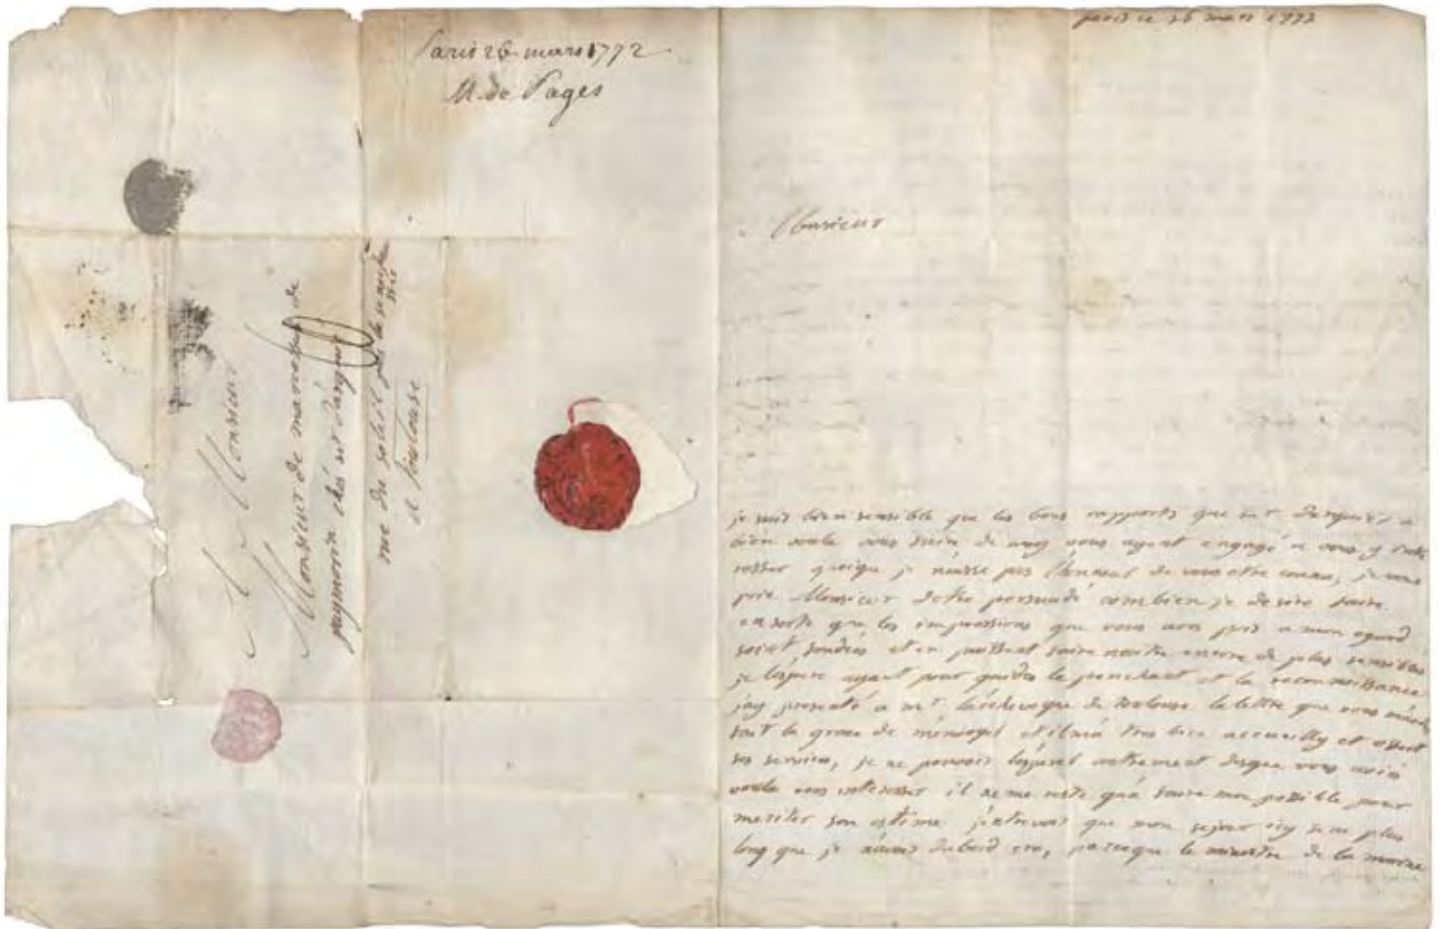 Paris 26 mars 1772
M. de Pages
A Monsieur
Monsieur de de
puymorin chés mr
rue du soleil
à Toulouse
paris ce 26 mars 1772
Monsieur
je suis bien sensible que les bons rapports que mr a
bien voulu vous faire de moy vous ayent engagé a vous y
quoique je neusse pas l'honneur de vous etre connu, je vous
prie Monsieur detre persuadé combien je desire faire
ensorte que les impressions que vous avés pris a mon egard
soint fondées et en puissent faire naitre encore de plus sensibles
je lespere ayant pour guides le penchant et la reconnoissance
jay presenté a mr larcheveque de toulouse la lettre que vous
fait la grace de et tres bien accueilly et offert
ses services, je ne pouvois esperer autrement vous
voulu vous interesser il ne me reste qua faire mon possible pour
meriter son estime que mon sejour icy sera plus
long que je dabord cru, parceque le ministre de la marine